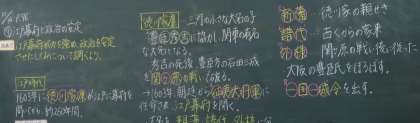 江戸幕府と政治の安定
江戸幕府が力を強め、政治を安定
させたしくみについて調べよう。
江戸時代
1603年に徳川家康が江戸に幕府を
開いてから約260年間。
徳川家康
三河の小さな大名の子
豊臣秀吉に協力し、関東の有名
な大名になる。
秀吉の死後、豊臣方の石田三成
を関ヶ原の戦いで破る。
→1603年 朝廷から征夷大将軍に
任命され江戸幕府を開く。
大名を親藩 譜代 外様に
親藩：徳川家の親せき
譜代：古くからの家来
外様：関ヶ原の戦い後に従った
大阪の豊臣氏をほろぼす。
一国一城令を出す。